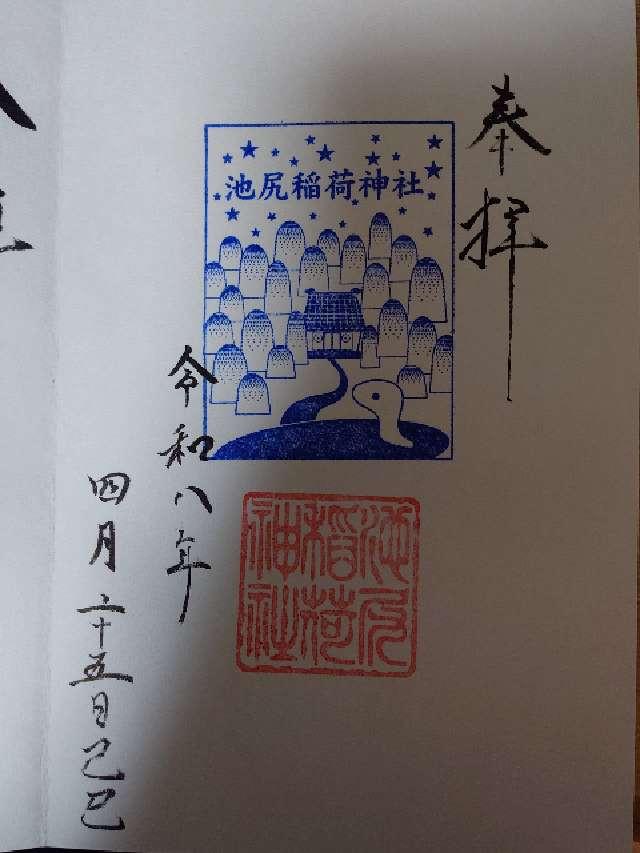 奉拝
池尻稲荷神社
池尻
稲荷
神社
令和八年
四月二十五日己巳